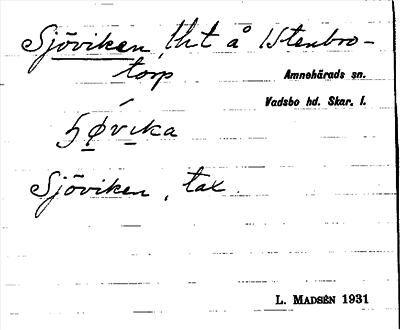 Sjöviken, lht å Istenbro-
torp
Amnehärads sn.
Vadsbo hd. Skar. l.
Sjöviken, tax.
L. MADSÉN 1931